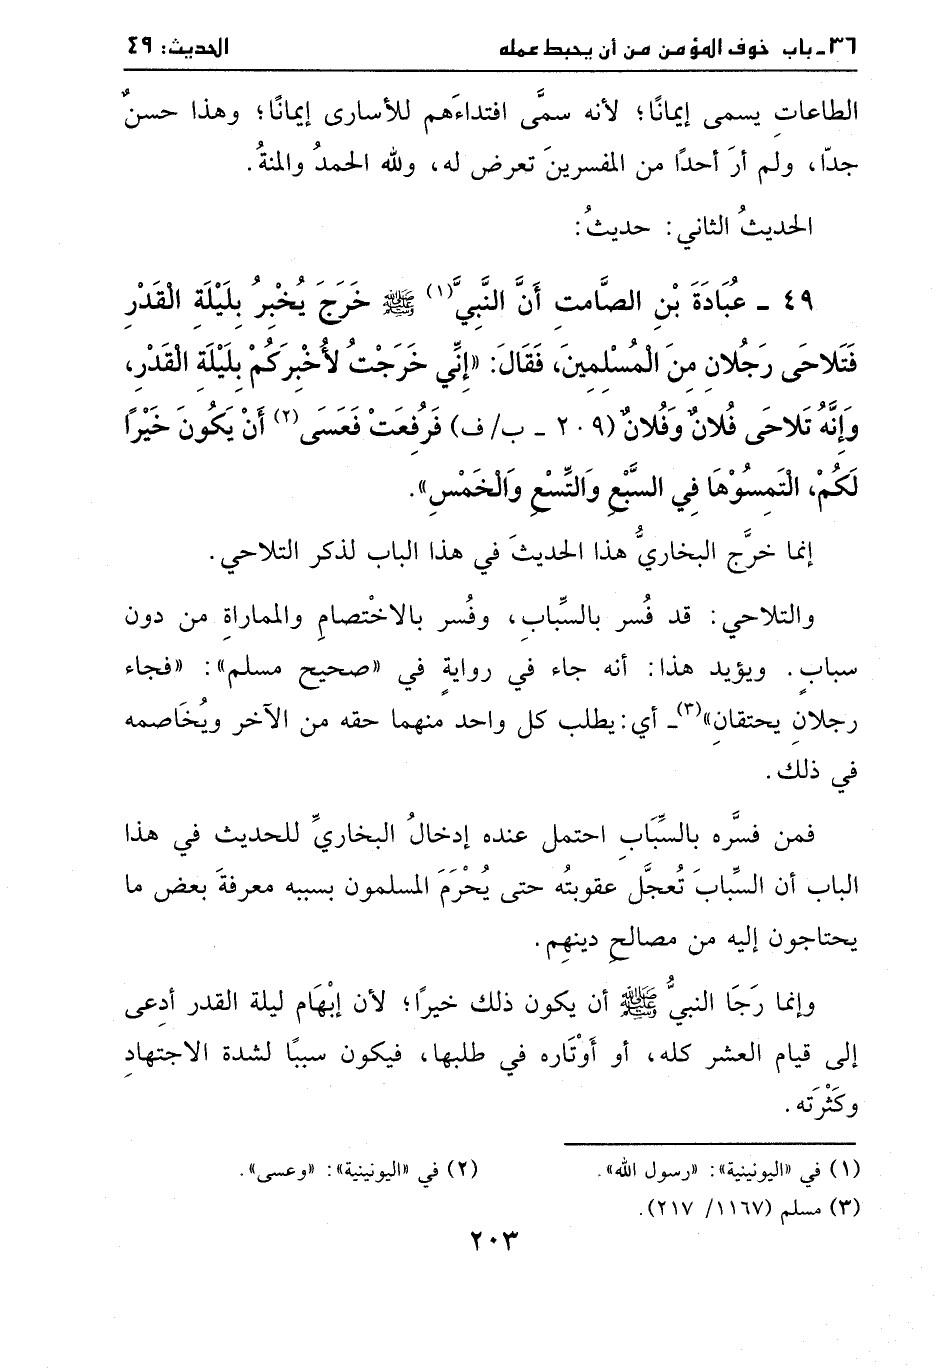 ٣٦ - باب خوف المؤمن من أن يحبط عمله الحديث: ٤٩
الطاعاتِ يسمى إيمانًا؛ لأنه سمَّى افتداءَهم للأسارى إيمانًا؛ وهذا حسنٌ
جدّا، ولم أرَ أحدًا من المفسرينَ تعرض له، ولله الحمدُ والمنةُ.
الحديثُ الثاني: حديثُ:
٤٩ - عُبَادَةَ بْنِ الصَّامتِ أَنَّ النَّبِيَّ(١) ﷺ خَرَجَ يُخْبِرُ بِلَيْلَةِ الْقَدْرِ
فَتَلاحَى رَجُلانِ مِنَ الْمُسْلِمِينَ، فَقَالَ: «إِنِّي خَرَجْتُ لأُخْبِرَكُمْ بِلَيْلَةِ الْقَدْرِ،
وَإِنَّهُ تَلاحَى فُلانٌ وَفُلانٌ (٢٠٩ - ب/ ف) فَرُفِعَتْ فَعَسَى(٢) أَنْ يَكُونَ خَيْرًا
لَكُمْ، الْتَمِسُوْهَا فِي السَّبْعِ وَالتِّسْعِ وَالْخَمْسِ».
إنما خرَّج البخاريُّ هذا الحديثَ في هذا الباب لذكر التلاحي.
والتلاحي: قد فُسر بالسِّبابِ، وفُسر بالاخْتصامِ والمماراةِ من دون
سبابٍ. ويؤيد هذا: أنه جاء في روايةٍ في «صحيح مسلم»: «فجاء
رجلانِ يحتقانِ»(٣)- أي: يطلب كل واحد منهما حقه من الآخر ويُخَاصمه
في ذلك.
فمن فسَّره بالسِّبَابِ احتمل عنده إدخالُ البخاريِّ للحديث في هذا
الباب أن السِّبابَ تُعجَّل عقوبتُه حتى يُحْرَمَ المسلمون بسببه معرفةَ بعض ما
يحتاجون إليه من مصالحِ دينهِم.
وإنما رَجَا النبيُّ ﷺ أن يكون ذلك خيرًا؛ لأن إبْهَام ليلة القدر أدعى
إلى قيام العشر كله، أو أَوْتَاره في طلبها، فيكون سببًا لشدة الاجتهادِ
وكَثْرَته.
(١) في «اليونينية»: «رسول الله». (٢) في «اليونينية»: «وعسى».
(٣) مسلم (١١٦٧/ ٢١٧).
٢٠٣